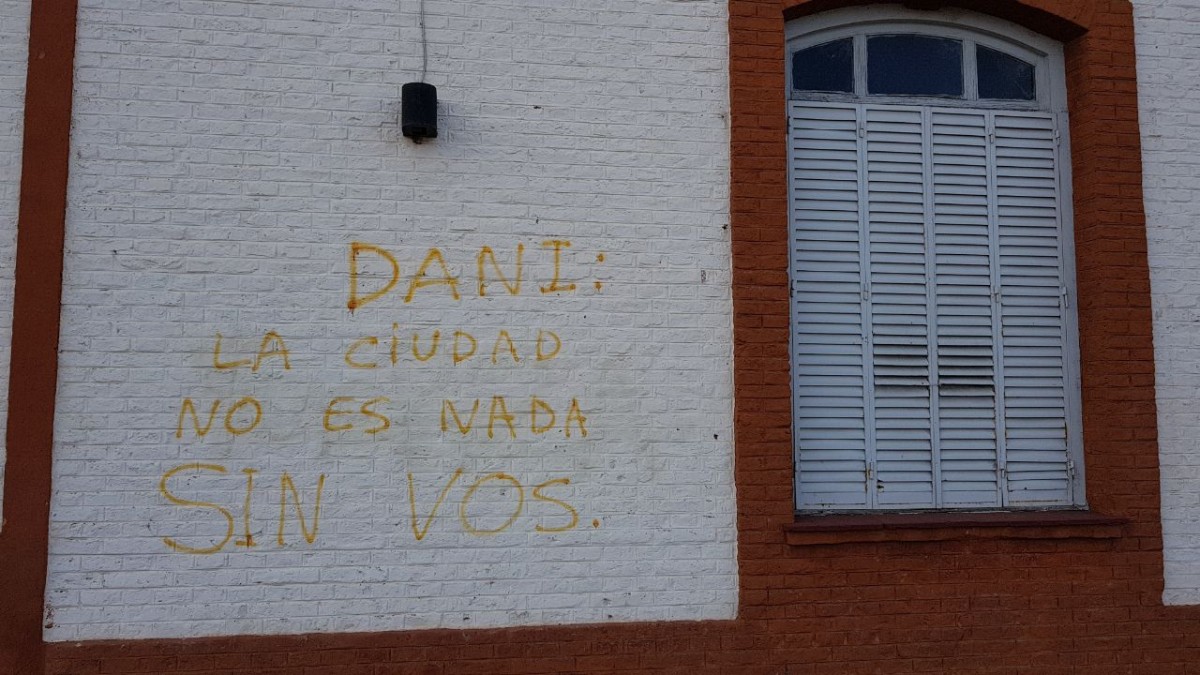 DANI:
LA CiUDAD
NO ES NADA
SIN VOS.